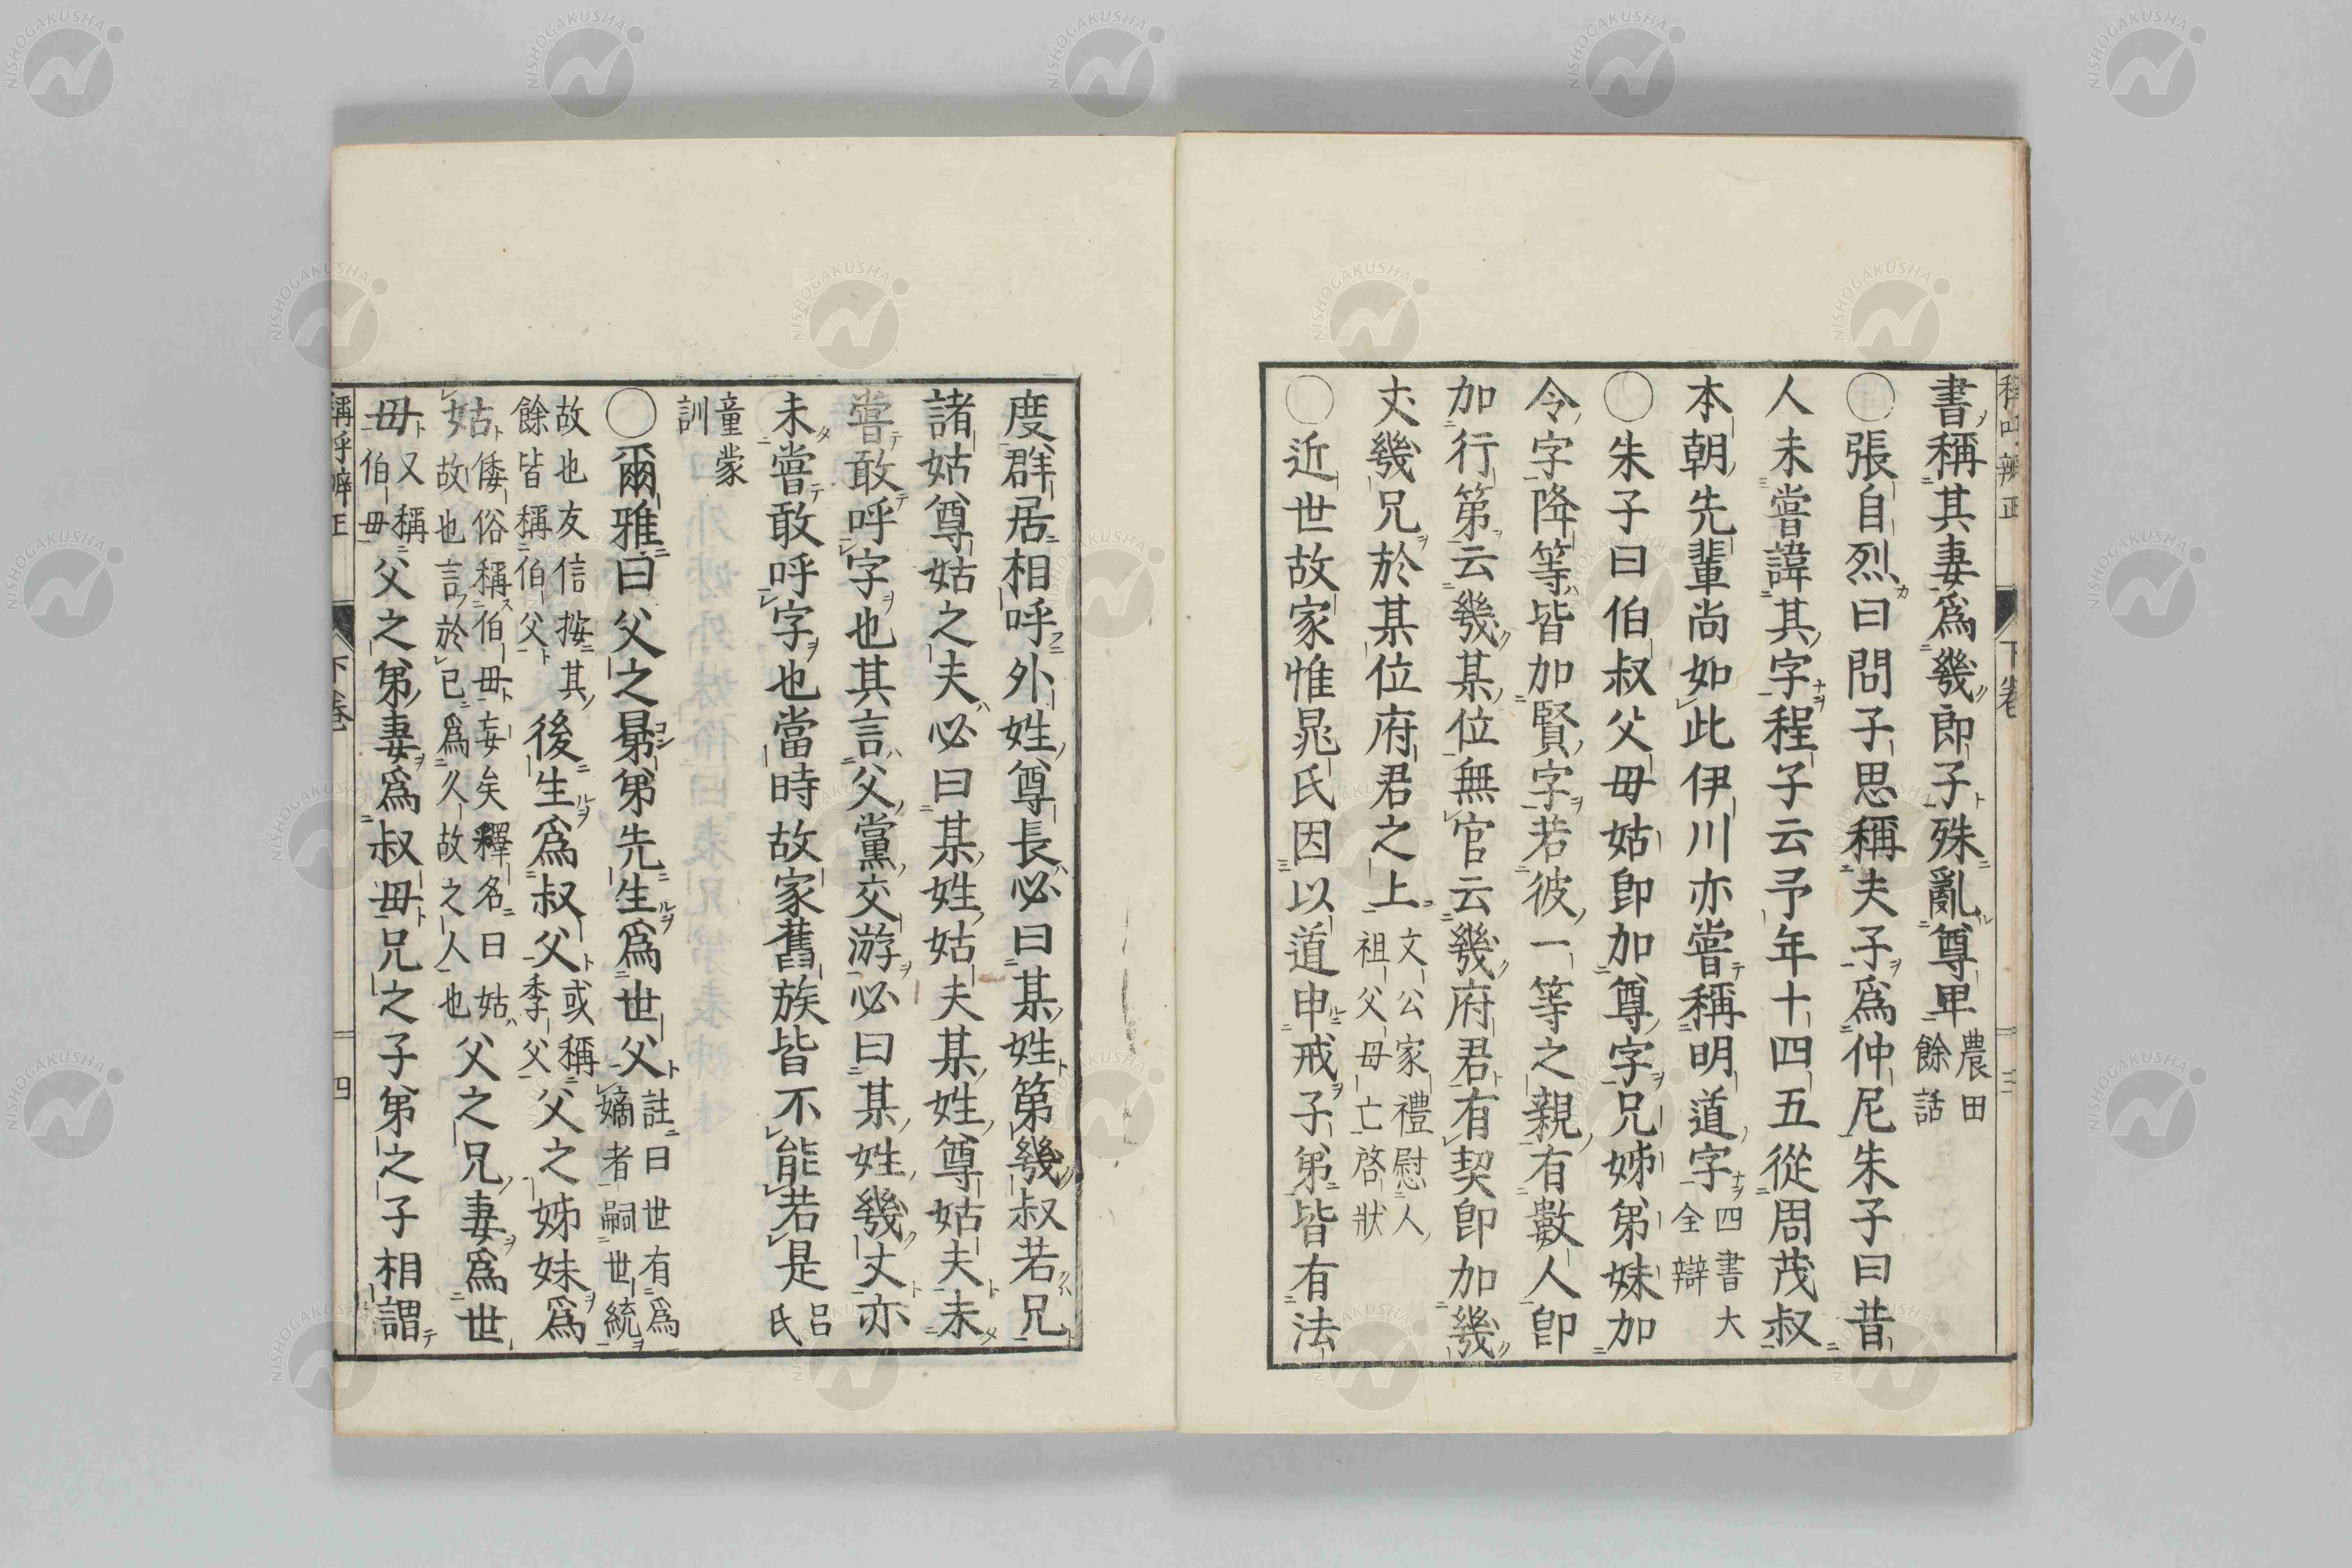 書稱其妻爲幾郎子殊亂尊卑農田餘話
○張自烈曰問子思稱夫子爲仲尼朱子曰昔
人未嘗諱其字程子云予年十四五從周茂叔
本朝先輩尚如此伊川亦嘗稱明道字四書大全辯
○朱子曰伯叔父母姑即加尊字兄姊弟妹加
令字降等皆加賢字若彼一等之親有數人即
加行第云幾某位無官云幾府君有契即加幾
丈幾兄於某位府君之上文公家禮慰人祖父母亡啓狀
○近世故家惟晁氏因以道申戒子弟皆有法
度群居相呼外姓尊長必曰某姓第幾叔若兄
諸姑尊姑之夫必曰某姓姑夫某姓尊姑夫未
嘗敢呼字也其言父黨交游必曰某姓幾丈亦
未嘗敢呼字也當時故家舊族皆不能若是呂氏
童蒙訓
○爾雅曰父之晜弟先生爲世父註曰世有爲嫡者嗣世統
故也友信按其餘皆稱伯父後生爲叔父或稱季父父之姊妹爲
姑倭俗稱伯母妄矣釋名曰姑故也言於己爲久故之人也父之兄妻爲世
母又稱伯母父之弟妻爲叔母兄之子弟之子相謂
稱呼辨正 下卷 三
稱呼辨正 下卷 四
NISHOGAKUSHA